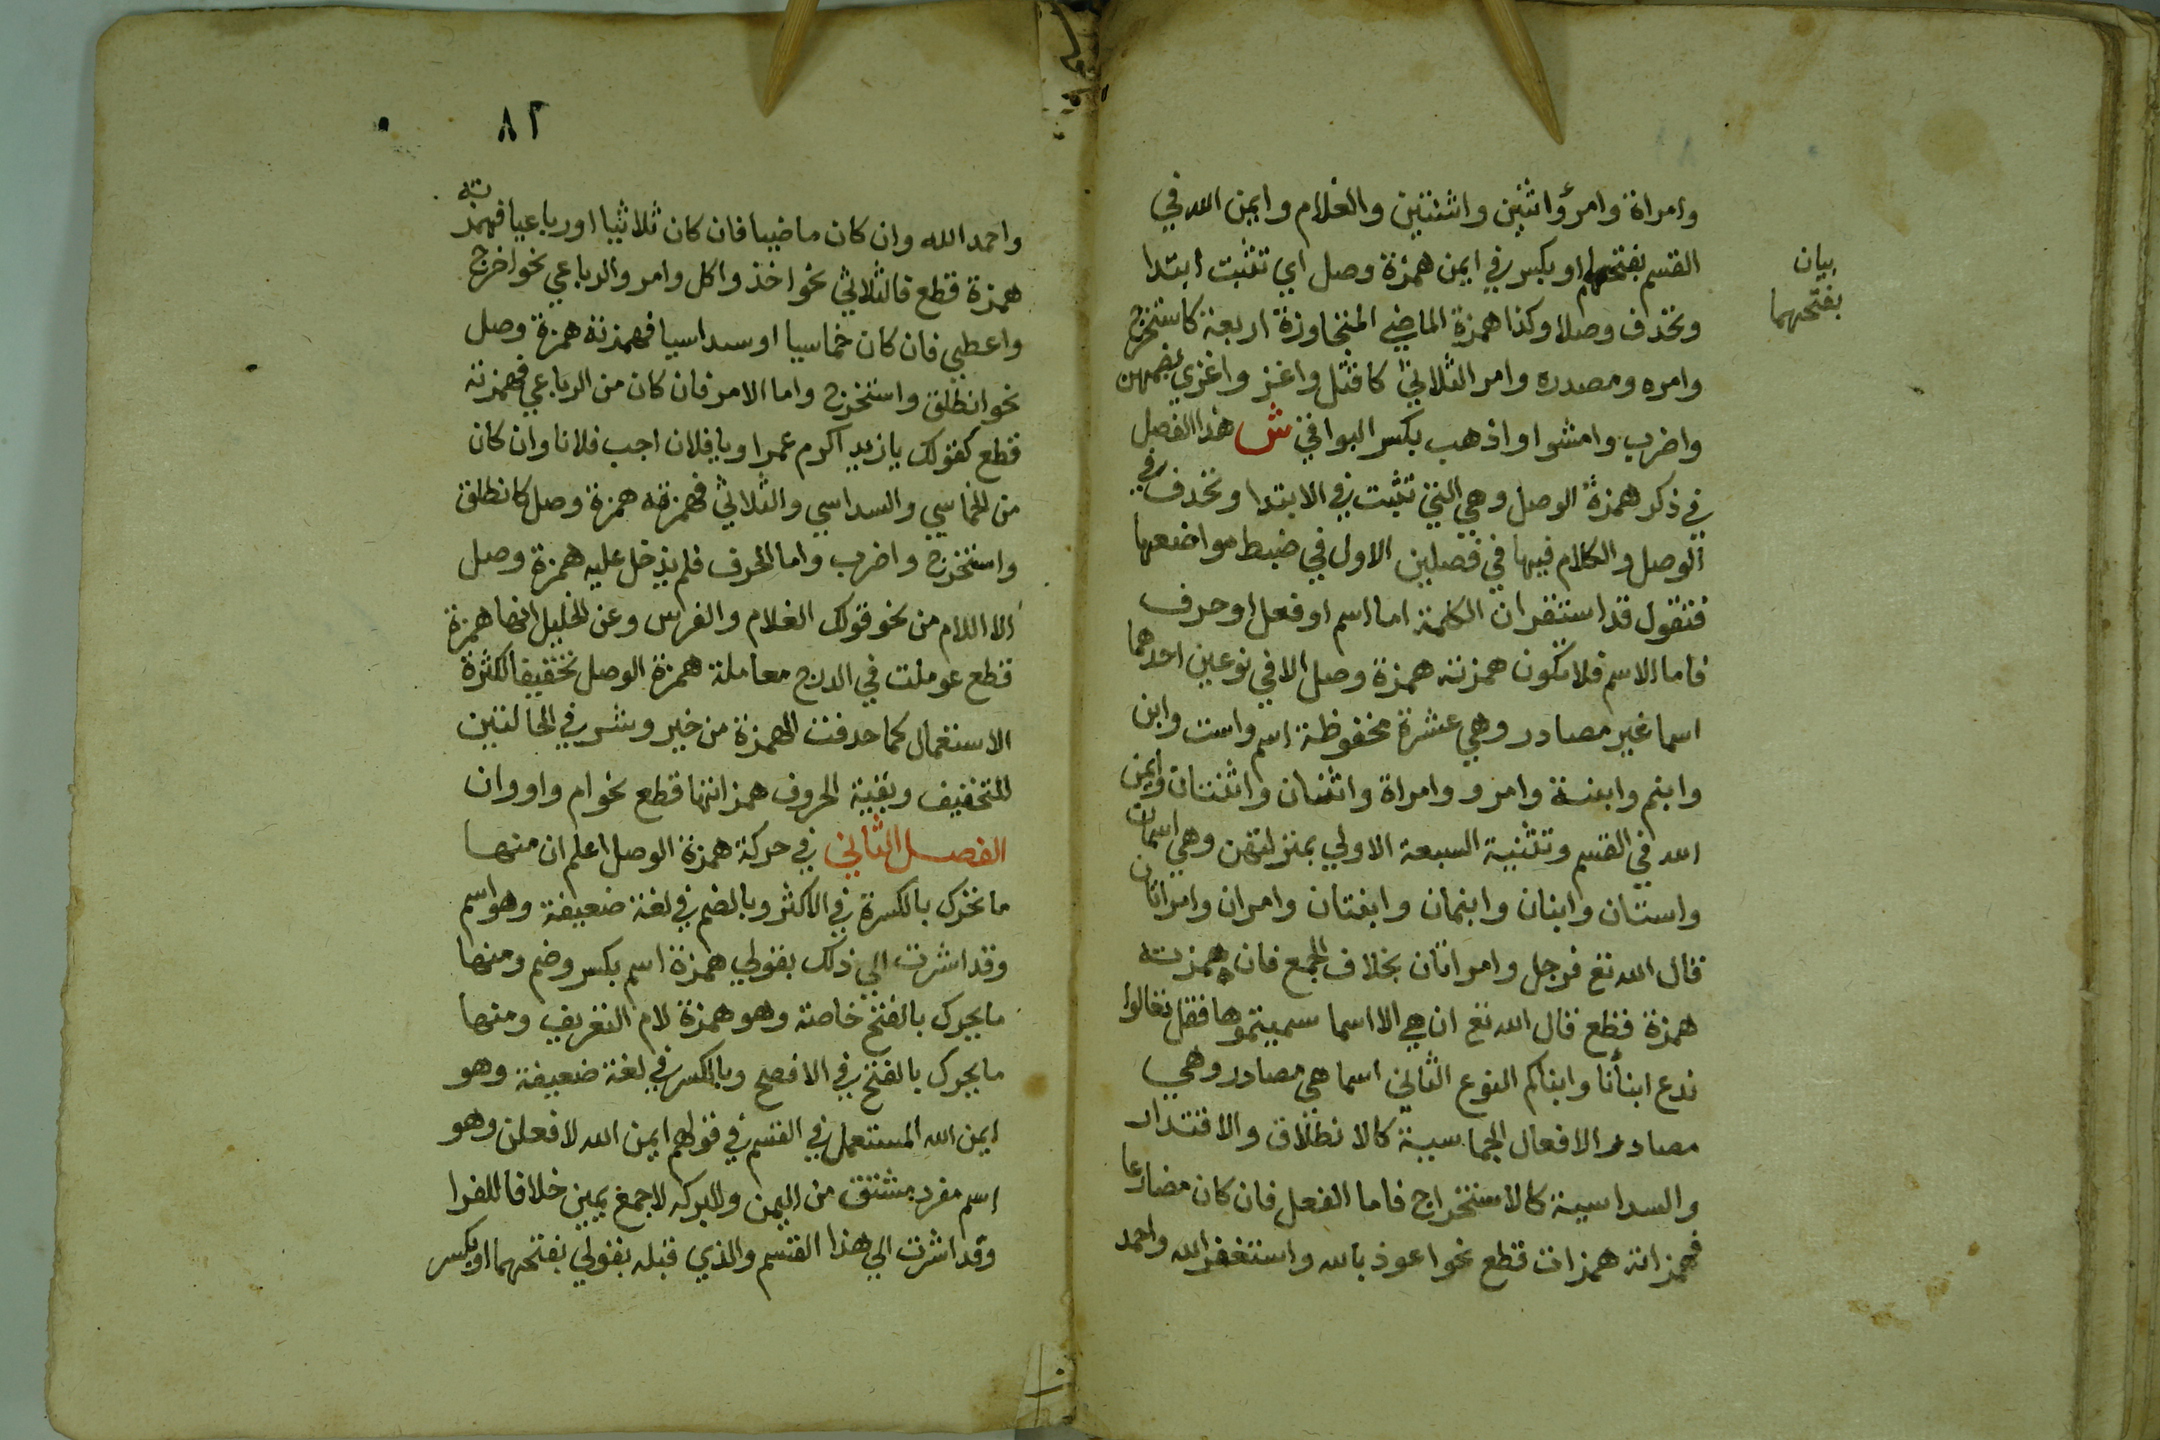 وامراة وامرؤ واثنين واثنتين والغلام وايمن الله في
القسم بفتحهما او بكسر في ايمن همزة وصل اي تثبت ابتدا
وتحذف وصلا وكذا همزة الماضي المتجاوزة اربعة كاستخرج
وامره ومصدره وامر الثلاثي كاقتل واغز واغزي بضمهن
واضرب وامشوا واذهب بكسر البواقي ش هذا الفصل
في ذكر همزة الوصل وهي التي تثبت في الابتدا وتحذف في
الوصل والكلام فيها في فصلين الاول في ضبط مواضعها
فنقول قد استقر ان الكلمة اما اسم او فعل او حرف
فاما الاسم فلا تكون همزته همزة وصل الا في نوعين احدهما
اسما غير مصادر وهي عشرة محفوظة اسم واست وابن
وابنم وابنة وامرو وامراة واثنان واثنتان وايمن
الله في القسم وتثنية السبعة الاولي بمنزلتهن وهي اسمان
واستان وابنان وابنمان وابنتان وامران وامراتان
قال الله تع فرجل وامراتان بخلاف الجمع فان همزته
همزة قطع قال الله تع ان هي الا اسما سميتموها فقل تعالوا
ندع ابنأنا وابناكم النوع الثاني اسما هي مصادر وهي
مصادر الافعال الخماسية كالانطلاق والاقتدار
والسداسية كالاستخراج فاما الفعل فان كان مضارعا
فهمزاته همزات قطع نحو اعوذ بالله واستغفر الله واحمد
بيان
بفتحهما
٨٢
واحمد الله وان كان ماضيا فان كان ثلاثيا او رباعيا فهمزته
همزة قطع فالثلاثي نحو اخذ واكل وامر والرباعي نحو اخرج
واعطي فان كان خماسيا او سداسيا فهمزته همزة وصل
نحو انطلق واستخرج واما الامر فان كان من الرباعي فهمزته
قطع كقولك يا زيد اكرم عمرا ويا فلان اجب فلانا وان كان
من الخماسي والسداسي والثلاثي فهمزته همزة وصل كانطلق
واستخرج واضرب واما الحرف فلم يدخل عليه همزة وصل
الا اللام من نحو قولك الغلام والفرس وعن الخليل انها همزة
قطع عوملت في الدرج معاملة همزة الوصل تخفيفا لكثرة
الاستعمال كما حدفت الهمزة من خير وشر في الحالتين
للتخفيف وبقية الحروف همزاتها قطع نحو ام واو وان
الفصل الثاني في حركة همزة الوصل اعلم ان منها
ما تحرك بالكسرة في الاكثر وبالضم في لغة ضعيفة وهو اسم
وقد اشرت الي ذلك بقولي همزة اسم بكسر وضم ومنها
ما يحرك بالفتح خاصة وهو همزة لام التعريف ومنها
ما يحرك بالفتح في الافصح وبالكسر في لغة ضعيفة وهو
ايمن الله المستعمل في القسم في قولهم ايمن الله لافعلن وهو
اسم مفرد مشتق من اليمن والبركه لا جمع يمين خلافا للفرا
وقد اشرت الي هذا القسم والذي قبله بقولي بفتحهما او بكسر